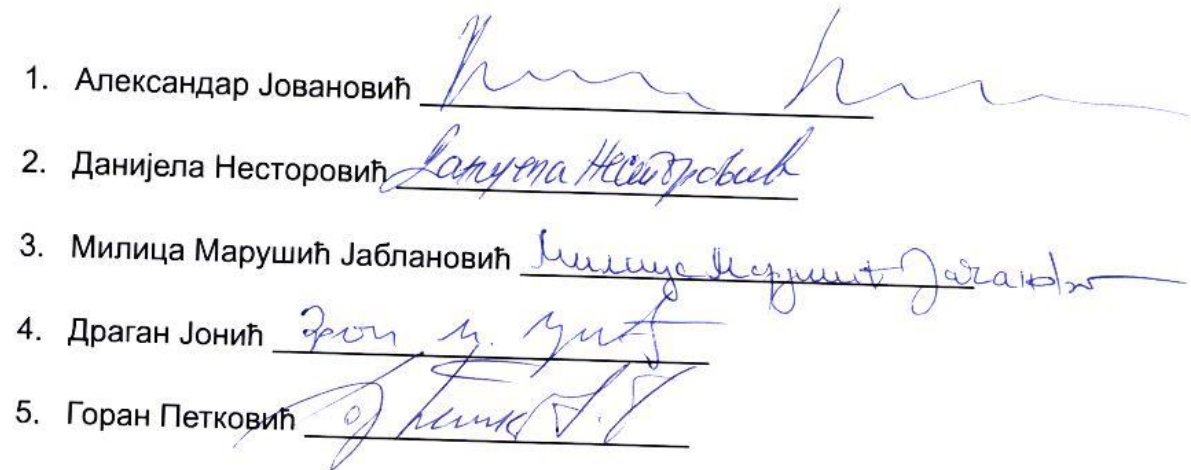 1. Александар Јовановић
2. Данијела Несторовић Данијела Несторовић
3. Милица Марушић Јаблановић Милица Марушић Јаблановић
4. Драган Јонић
5. Горан Петковић